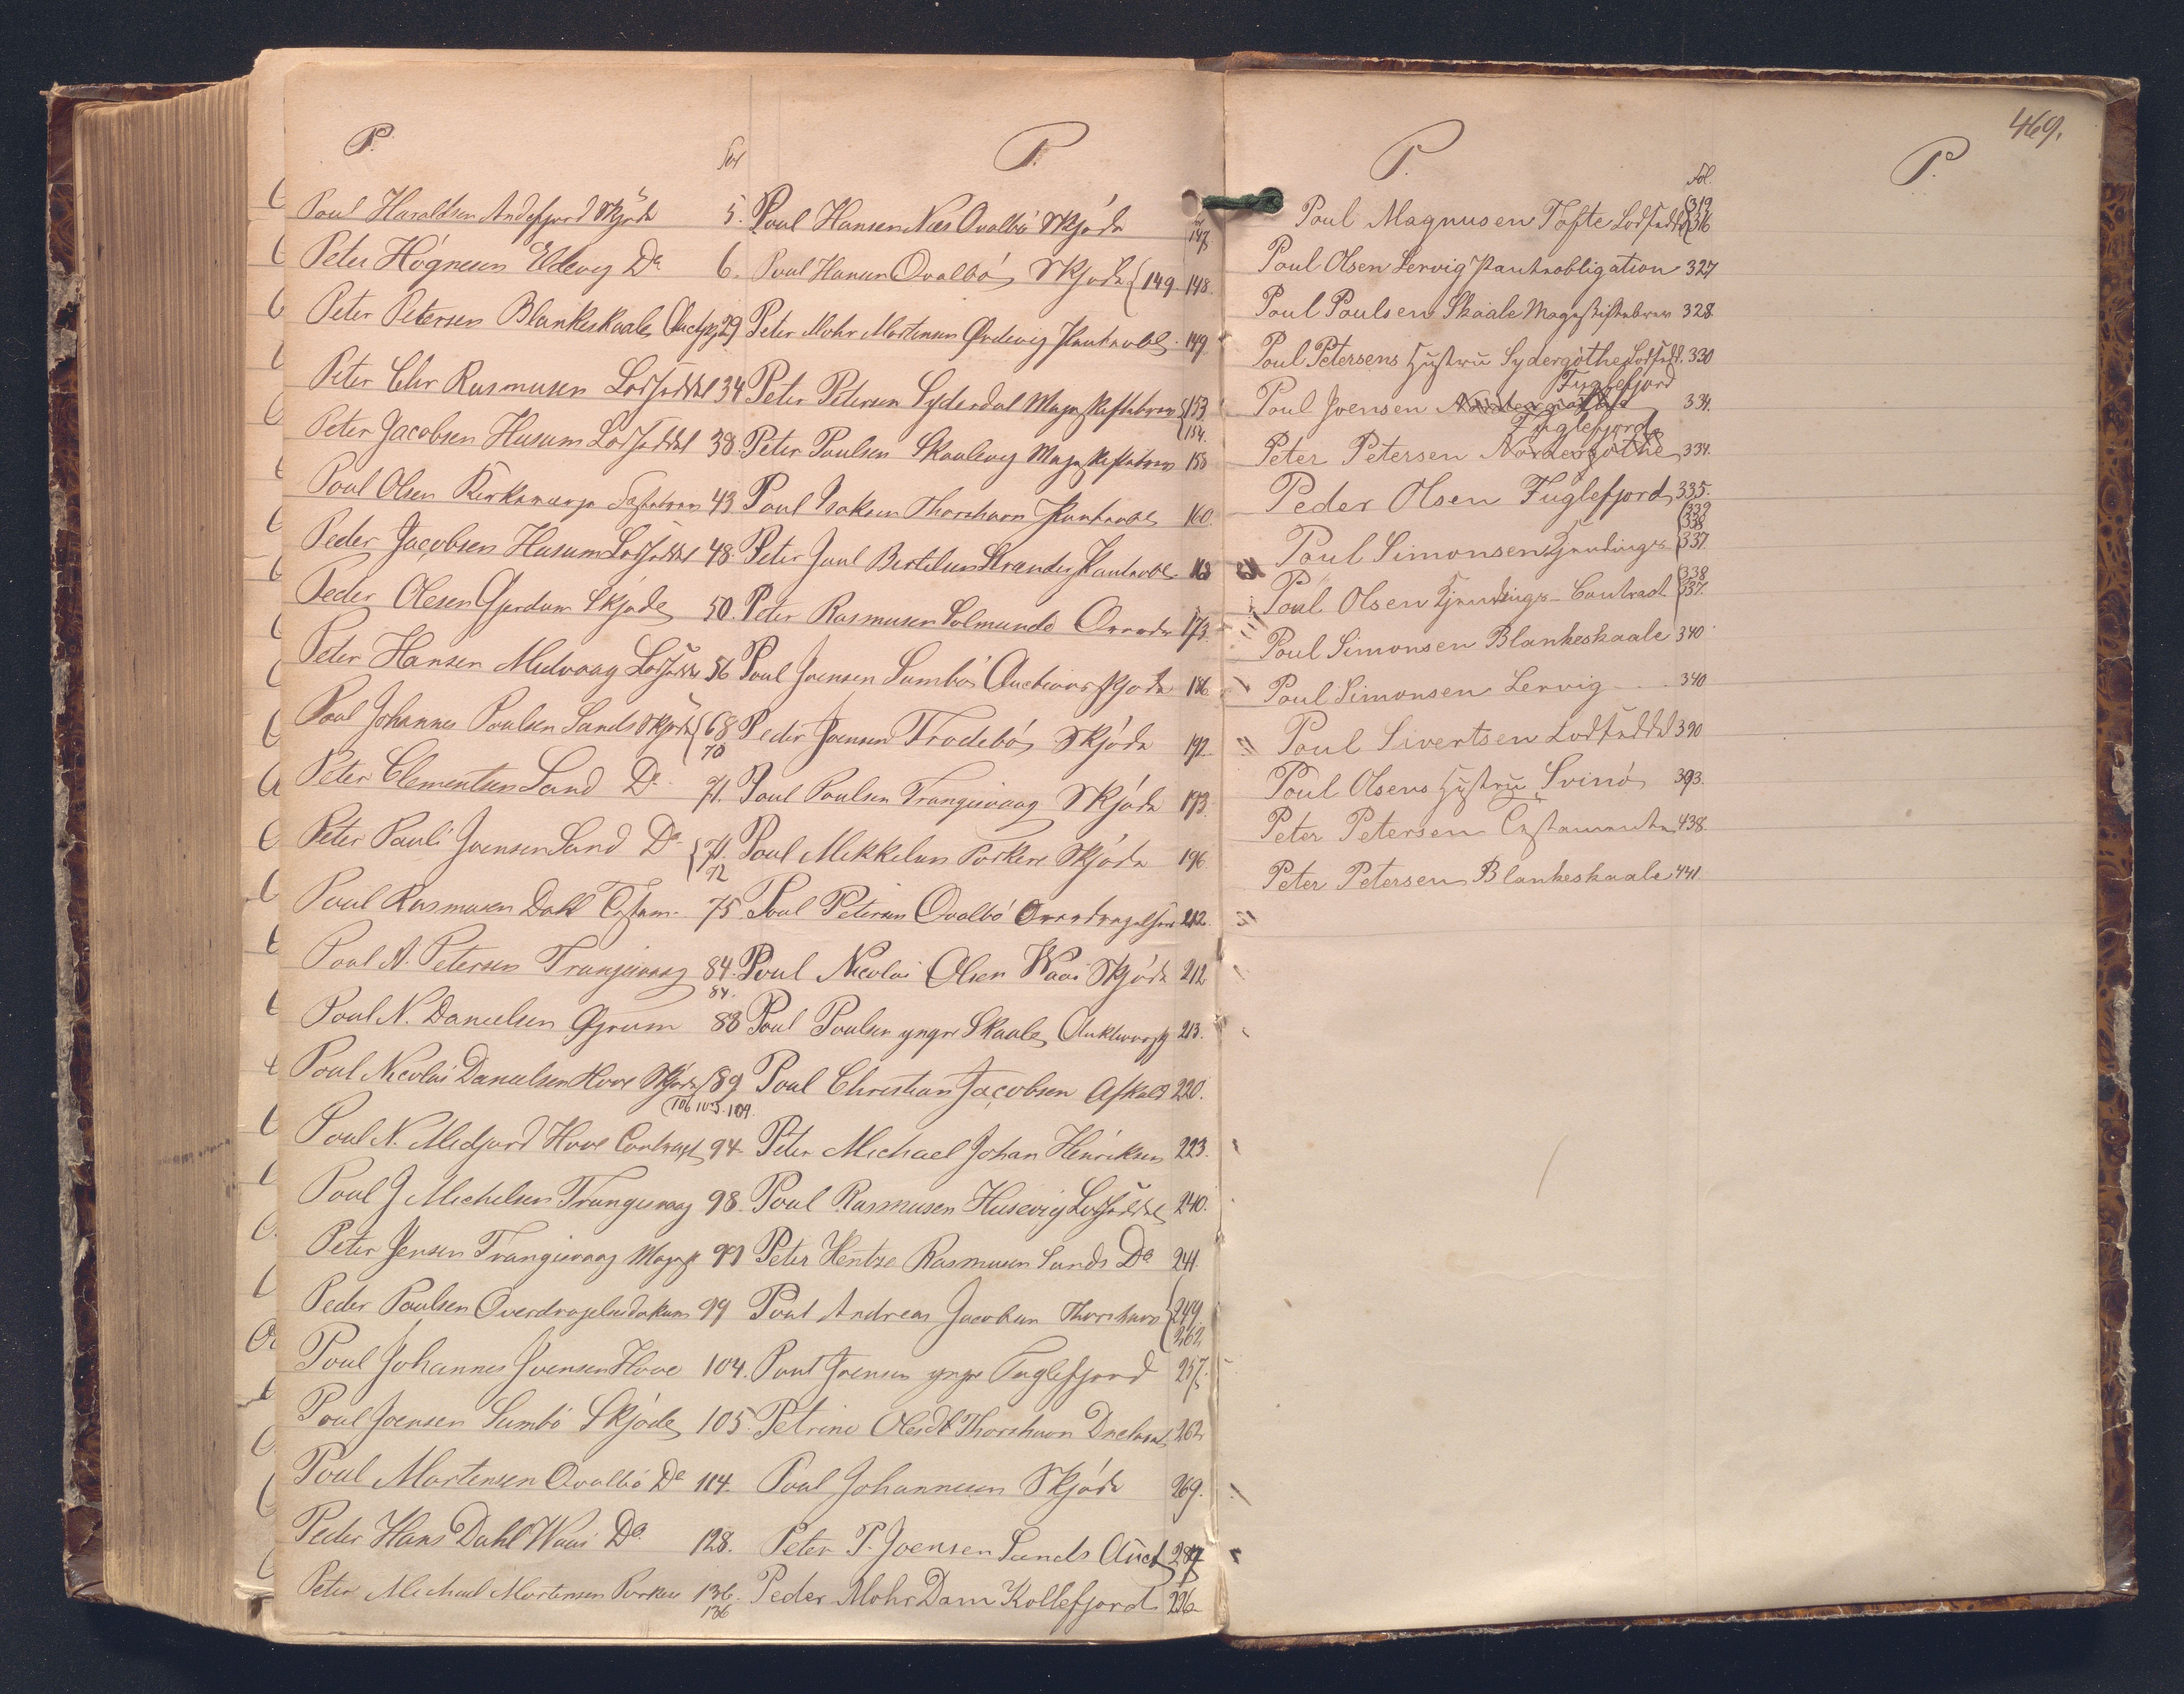 P.
Fol
Poul Haraldsen Andefjord Skjöde 5.
Peter Högnesen Eldevig Do 6.
Peter Petersen Blankeskaale Auctsk 29
Peter Chr Rasmusen Lodseddel 34
Peter Jacobsen Husum Lodseddel 38.
Poul Olsen Kirkamuerja Festebrev 43
Peder Jacobsen Husum Lodseddel 48.
Peder Olesen Gjerdum Skjöde 50.
Peter Hansen Midvaag Lodsedel 56
Poul Johannes Poulsen Sands Skjöde 68
70
Peter Clementsen Sand Do 71.
Peter Pauli Joensen Sand Do 71.
72
Poul Rasmusen Dahl Testam. 75
Poul N. Petersen Trangisvaag 84.
84.
Poul N. Danielsen Öjrum 88
Poul Nicolai Danielsen Hove Skjöde 89
106 105. 109.
Poul N. Midjord Hove Contract 94.
Poul J Michelsen Trangisvaag 98.
Peter Jensen Trangisvaag Mages 99
Peder Poulsen Overdragelsesdokum 99
Poul Johannes Joensen Hove 104.
Poul Joensen Sumbö Skjöde 105.
Poul Mortensen Qvalbö Do 114.
Peder Hans Dahl Waai Do 128.
Peter Michael Mortensen Porkere 136.
136
P.
Poul Hansen Næs Qvalbö Skjöde 147.
Poul Hansen Qvalbö Skjöde 149 148.
Peter Mohr Mortensen Ördevig Panteobl. 149
Peter Petersen Syderdal Mageskiftebrev 153
154.
Peter Poulsen Skaalevig Mageskiftebrev 158
Poul Isaksen Thorshavn Panteobl 160.
Peter Juul Bertelsen Strander Panteobl 168
Peter Rasmusen Solmunde 173.
Poul Joensen Sumbö Auctionsskjöde 186
Peder Joensen Frodebö Skjöde 192
Poul Poulsen Trangisvaag Skjöde 193.
Poul Mikkelsen Porkere Skjöde 196
Poul Petersen Qvalbö Overdragelse 212.
Poul Nicolai Olsen Waai Skjöde 212
Poul Poulsen yngre Skaale Auktionssk 213.
Poul Christian Jacobsen Afkald 220.
Peter Michael Johan Henriksen 223.
Poul Rasmusen Husevig Lodseddel 240.
Peter Hentze Rasmusen Sands Do 241.
Poul Andreas Jacobsen Thorshavn 249.
262
Poul Joensen yngre Fuglefjord 257.
Petrine Olesdt Thorshavn 262
Poul Johannesen Skjöde 269.
Peter P. Joensen Sands Auct 287
Peder Mohr Dam Kollefjord 296
469.
P.
Fol.
319
Poul Magnusen Tofte Lodseddel 316
Poul Olsen Lervig Panteobligation 327
Poul Poulsen Skaale Mageskiftebrev 328
Poul Petersens Hustru Sydergöthe Lodsedd. 330
Fuglefjord
Poul Joensen Nordergöthe 334.
Fuglefjord
Peter Petersen Nordergöthe 334.
Peder Olsen Fuglefjord 335.
339
338
Poul Simonsen Hjemtings 337.
338
Poul Olsen Hjemtings-Contract 337.
Poul Simonsen Blankeskaale 340
Poul Simonsen Lervig 340
Poul Sivertsen Lodseddel 390
Poul Olsens Hustru Svinö 393.
Peter Petersen Testamente 438.
Peter Petersen Blankeskaale 441.
P.